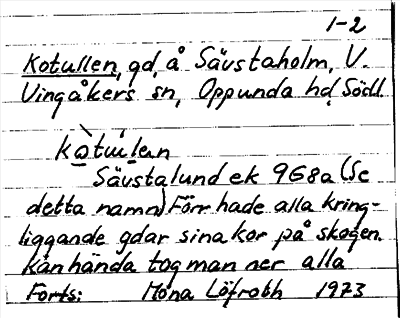 1-2
Kotullen, gd, å Sävstaholm, V.
Vingåkers sn, Oppunda hd, Södl.
kòtúlan
Sävstalund ek 9G8a (Se
detta namn) Förr hade alla kring-
liggande gdar sina kor på skogen.
Kanhända tog man ner alla
Forts: Mona Löfroth 1973